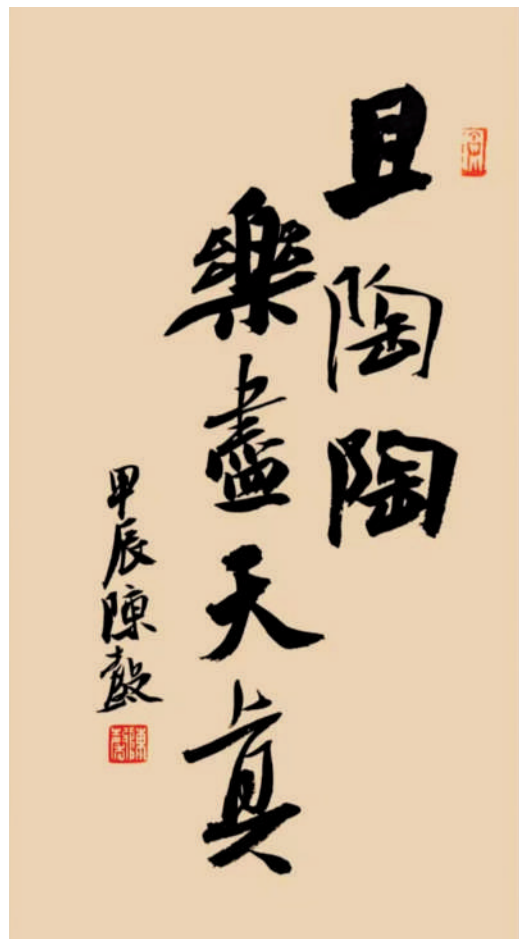 且陶陶
樂盡天真
甲辰陳